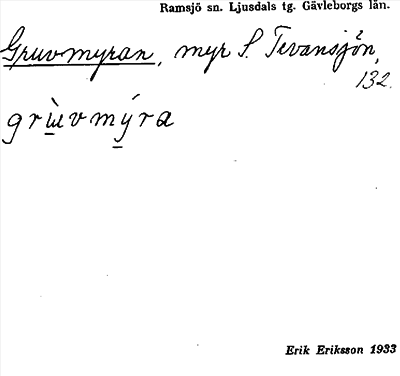 Ramsjö sn. Ljusdals tg. Gävleborgs län.
Gruvmyran, myr S. Tevansjön,
132.
grùvmýra
Erik Eriksson 1933